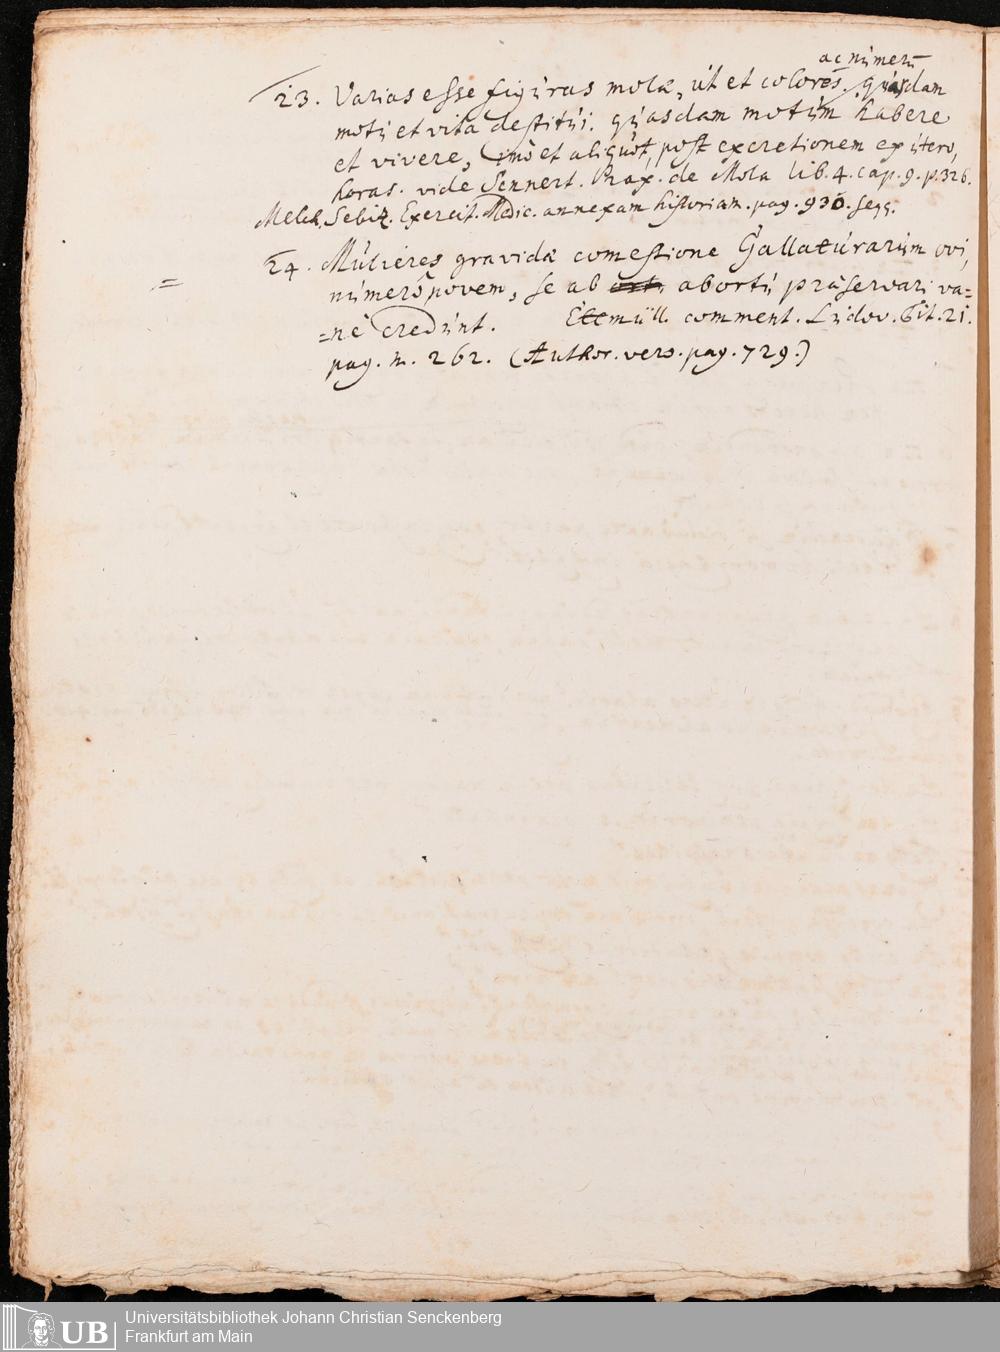 ac numerū
23. Varias esse figuras molæ, ut et colores. quasdam
motu et vita destitui. quasdam motum habere
et vivere, imò et aliquot, post excretionem ex utero,
horas. vide Sennert. Prax. de Mola lib. 4. cap. 9. p. 326.
Melch. Sebiz. Exercit. Medic. annexam historiam. pag. 930. seqq.
24. Mulieres gravidæ comestione Gallaturarum ovi,
= numerô novem, se ab abortu præservari va=
=nè credunt. Ettmüll. comment. Ludov. Tit. 21.
pag. m. 262. (Author. vers. pag. 729.)
Universitätsbibliothek Johann Christian Senckenberg
Frankfurt am Main
UB